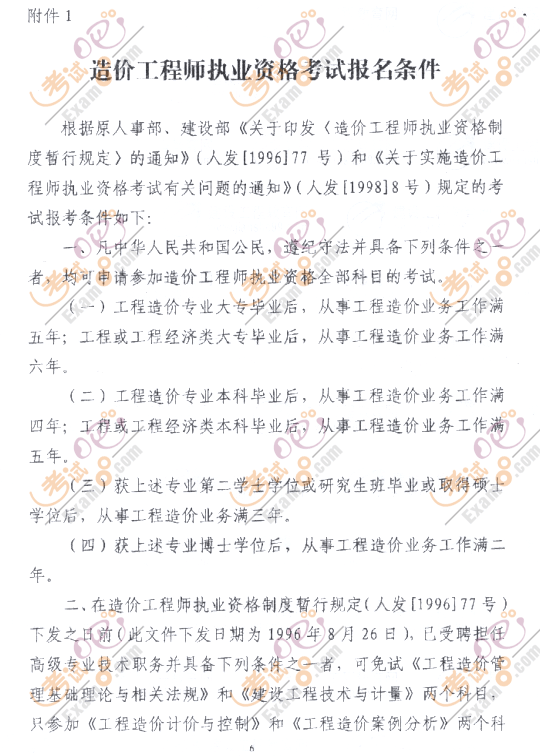 附件 1
造价工程师执业资格考试报名条件
根据原人事部、建设部《关于印发〈造价工程师执业资格制
度暂行规定〉的通知》(人发[1996]77 号)和《关于实施造价工
程师执业资格考试有关问题的通知》(人发[1998]8 号)规定的考
试报考条件如下:
一、凡中华人民共和国公民,遵纪守法并具备下列条件之一
者,均可申请参加造价工程师执业资格全部科目的考试。
(一)工程造价专业大专毕业后,从事工程造价业务工作满
五年;工程或工程经济类大专毕业后,从事工程造价业务工作满
六年。
(二)工程造价专业本科毕业后,从事工程造价业务工作满
四年;工程或工程经济类本科毕业后,从事工程造价业务工作满
五年。
(三)获上述专业第二学士学位或研究生班毕业或取得硕士
学位后,从事工程造价业务满三年。
(四)获上述专业博士学位后,从事工程造价业务工作满二
年。
二、在造价工程师执业资格制度暂行规定(人发[1996]77 号)
下发之日前(此文件下发日期为 1996 年 8 月 26 日),已受聘担任
高级专业技术职务并具备下列条件之一者,可免试《工程造价管
理基础理论与相关法规》和《建设工程技术与计量》两个科目,
只参加《工程造价计价与控制》和《工程造价案例分析》两个科
6